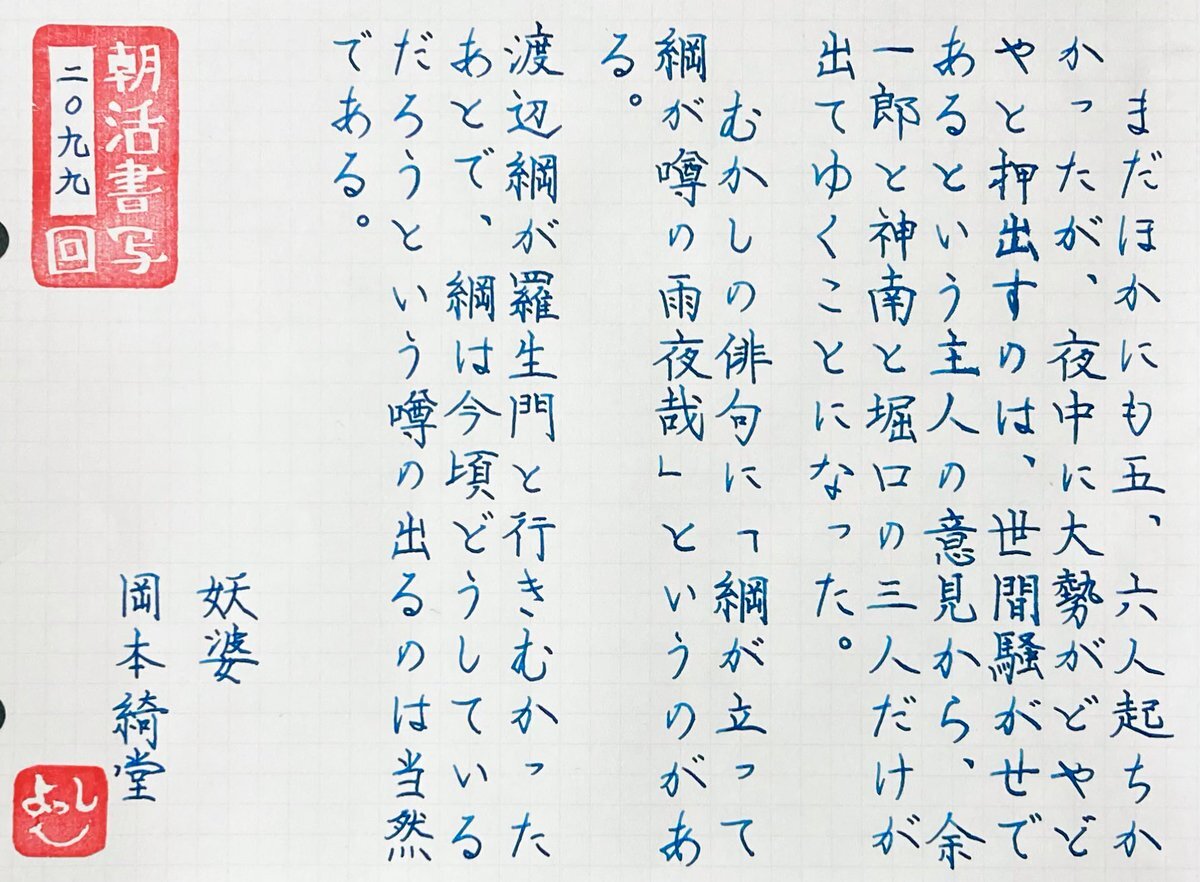 まだほかにも五、六人起ちか
かったが、夜中に大勢がどやど
やと押出すのは、世間騒がせで
あるという主人の意見から、余
一郎と神南と堀口の三人だけが
出てゆくことになった。
むかしの俳句に「綱が立って
綱が噂の雨夜哉」というのがあ
る。
渡辺綱が羅生門と行きむかった
あとで、綱は今頃どうしている
だろうという噂の出るのは当然
である。
妖婆
岡本綺堂
朝活書写
二〇九九
回
よっしー